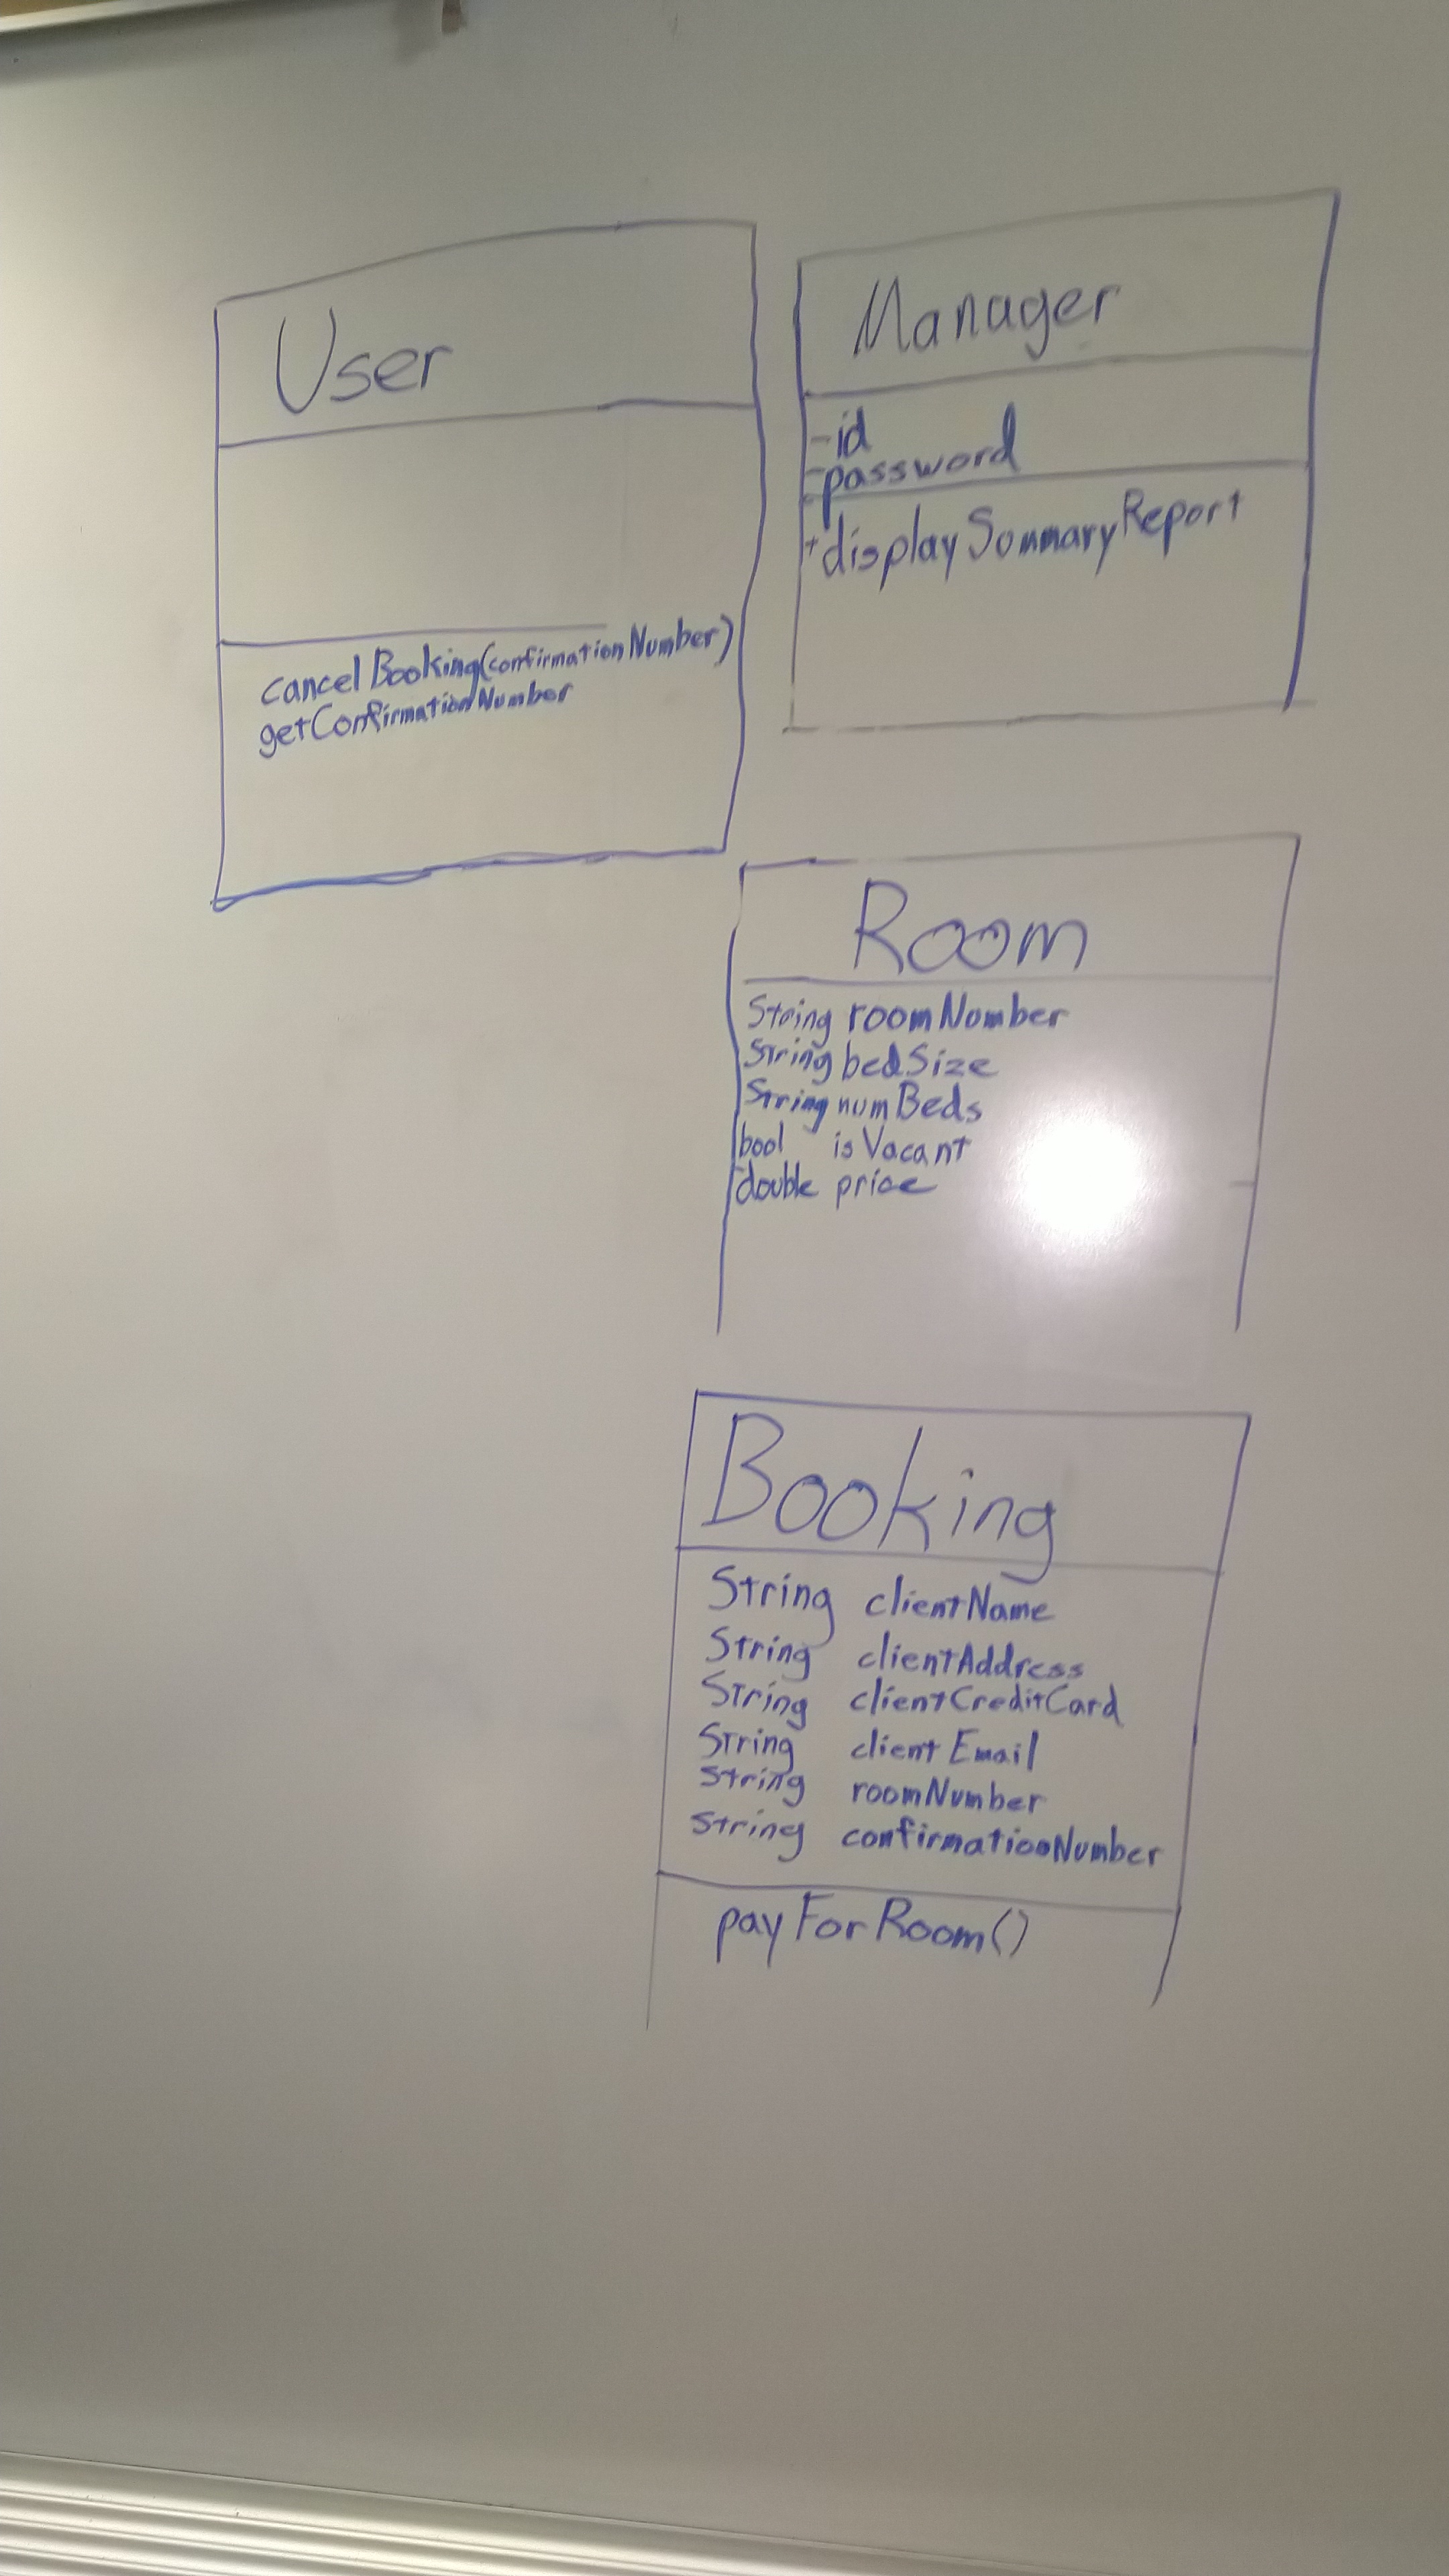 User
cancelBooking(confirmationNumber)
getConfirmationNumber
Manager
-id
-password
+displaySummaryReport
Room
String roomNumber
String bedSize
String numBeds
bool isVacant
double price
Booking
String clientName
String clientAddress
String clientCreditCard
String clientEmail
String roomNumber
String confirmationNumber
payForRoom()